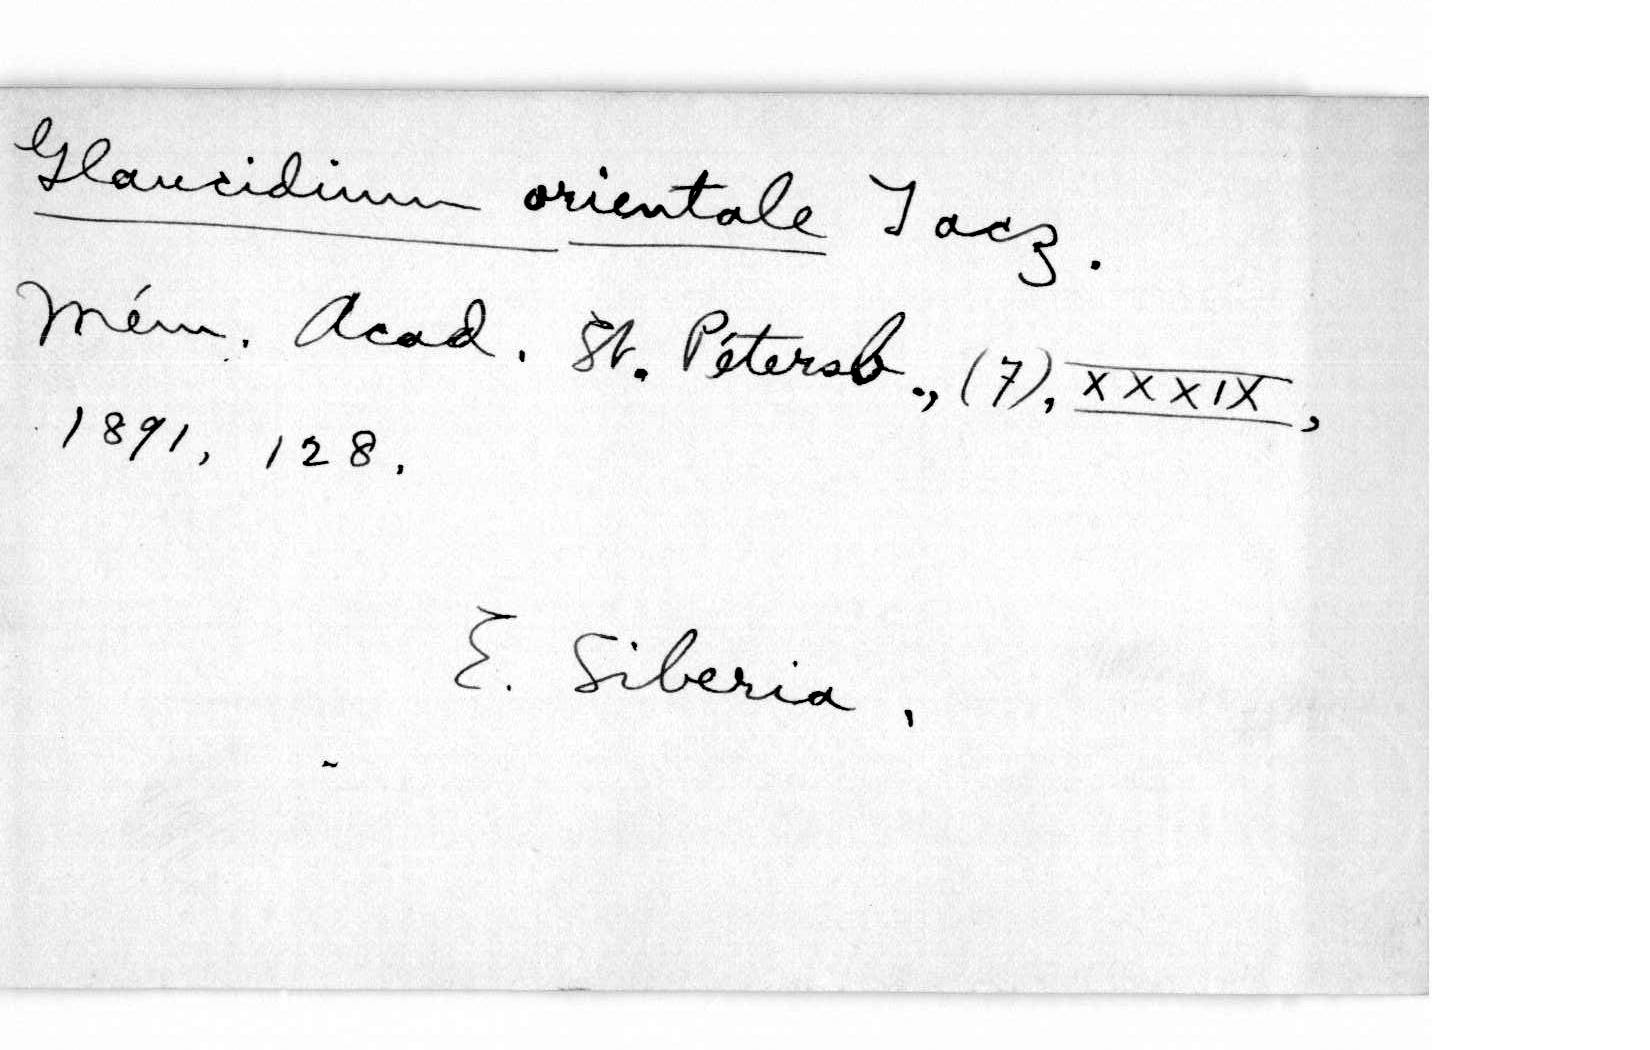 Glaucidium orientale Tacz.
Mém. Acad. St. Pétersb., (7), XXXIX,
1891, 128.
E. Siberia.